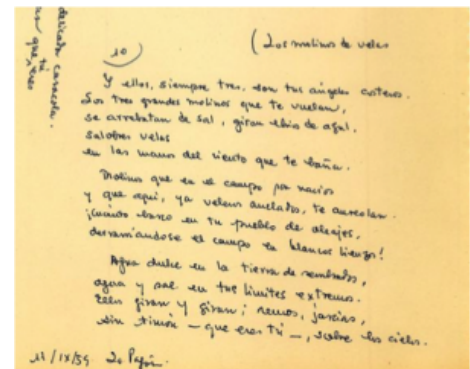 delicada caracola.
que tú eres
10) (Los molinos de velas
Y ellos, siempre tres, son tus ángeles costeros.
Sus tres grandes molinos que te vuelan,
se arrebatan de sal, giran ebrios de azul,
salobres velas
en las manos del viento que te baña.
Molinos que en el campo por navíos
y que aquí, ya veleros anclados, te aureolan.
¡Cuánto barco en tu pueblo de
derramándose el campo en blancos lienzos!
Agua dulce en la tierra de sembrados,
agua y sal en tus límites extremos.
Ellos giran y giran; remos, jarcias,
sin timón — que eres tú —, sobre los cielos.
11/IX/59.